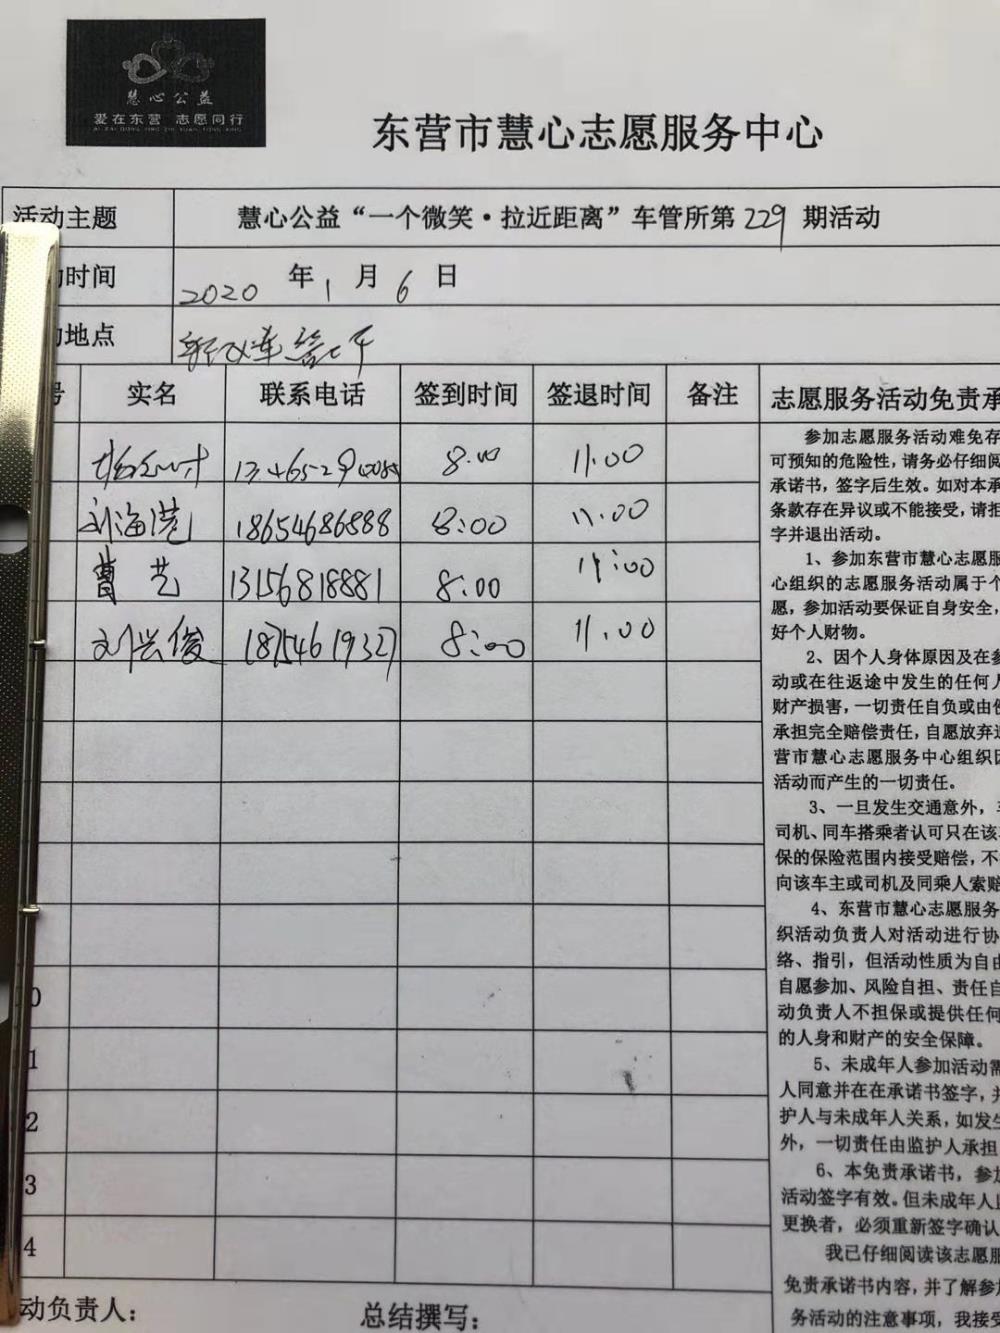 慧心公益
爱在东营 志愿同行
AI ZAI DONG YING ZHI YUAN TONG XING
东营市慧心志愿服务中心
活动主题 慧心公益“一个微笑·拉近距离”车管所第229期活动
动时间 2020 年 1 月 6 日
动地点
号 实名 联系电话 签到时间 签退时间 备注 志愿服务活动免责承
8:00 11:00
刘海港 18654686888 8:00 11:00
曹艺 13156818881 8:00 11:00
刘兴俊 18754619327 8:00 11:00
0
1
2
3
4
参加志愿服务活动难免存
可预知的危险性，请务必仔细阅
承诺书，签字后生效。如对本承
条款存在异议或不能接受，请拒
字并退出活动。
1、参加东营市慧心志愿服
心组织的志愿服务活动属于个
愿，参加活动要保证自身安全，
好个人财物。
2、因个人身体原因及在参
动或在往返途中发生的任何人
财产损害，一切责任自负或由
承担完全赔偿责任，自愿放弃
营市慧心志愿服务中心组织因
活动而产生的一切责任。
3、一旦发生交通意外，
司机、同车搭乘者认可只在该
保的保险范围内接受赔偿，不
向该车主或司机及同乘人索赔
4、东营市慧心志愿服务
织活动负责人对活动进行协
络、指引，但活动性质为自由
自愿参加、风险自担、责任自
动负责人不担保或提供任何
的人身和财产的安全保障。
5、未成年人参加活动需
人同意并在在承诺书签字，
护人与未成年人关系，如发生
外，一切责任由监护人承担
6、本免责承诺书，参加
活动签字有效。但未成年人
更换者，必须重新签字确认
我已仔细阅读该志愿服
免责承诺书内容，并了解参加
务活动的注意事项，我接受
动负责人： 总结撰写：